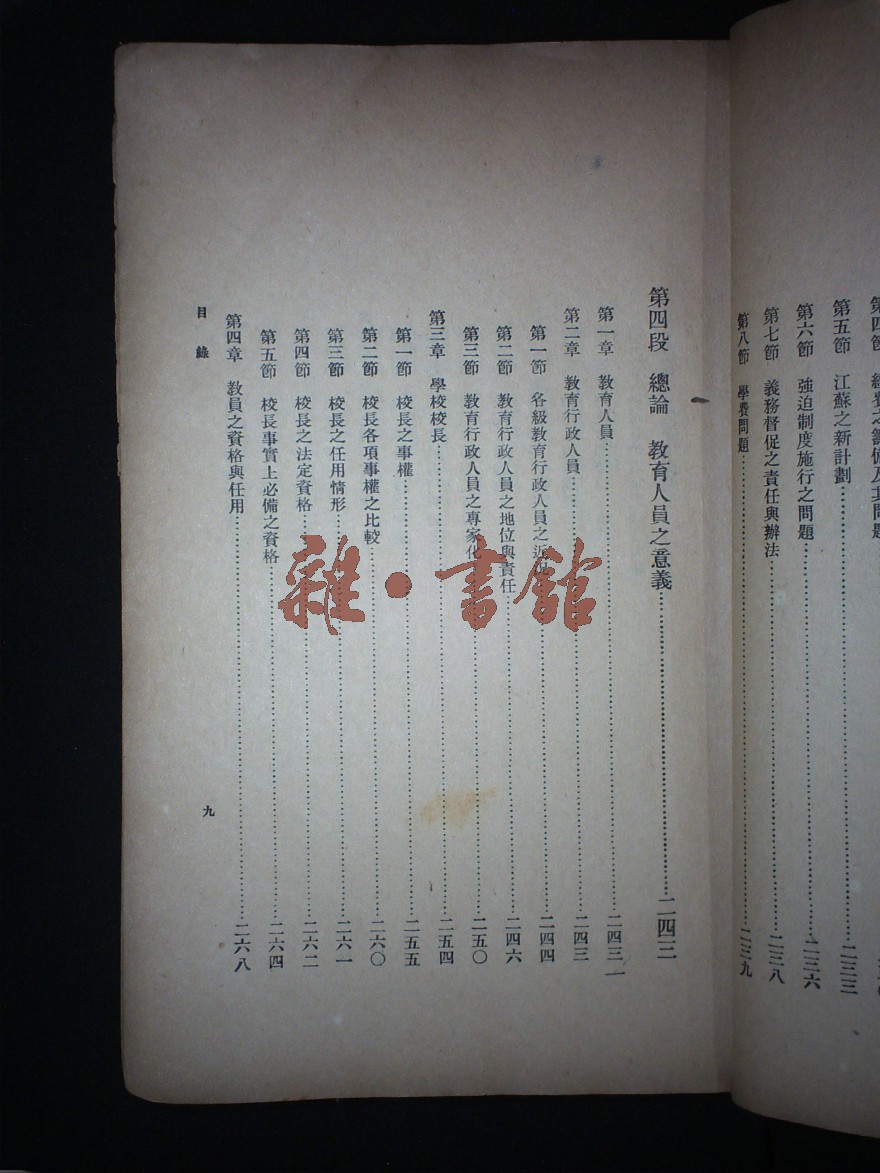 第五節 江蘇之新計劃……二三三
第六節 強迫制度施行之問題……二三六
第七節 義務督促之責任與辦法……二三八
第八節 學費問題……二三九
第四段 總論 教育人員之意義……二四三
第一章 教育人員……二四三
第二章 教育行政人員……二四三
第一節 各級教育行政人員之……二四四
第二節 教育行政人員之地位與責任……二四六
第三節 教育行政人員之專家化……二五〇
第三章 學校校長……二五四
第一節 校長之事權……二五五
第二節 校長各項事權之比較……二六〇
第三節 校長之任用情形……二六一
第四節 校長之法定資格……二六二
第五節 校長事實上必備之資格……二六四
第四章 教員之資格與任用……二六八
目錄 九
雜·書館